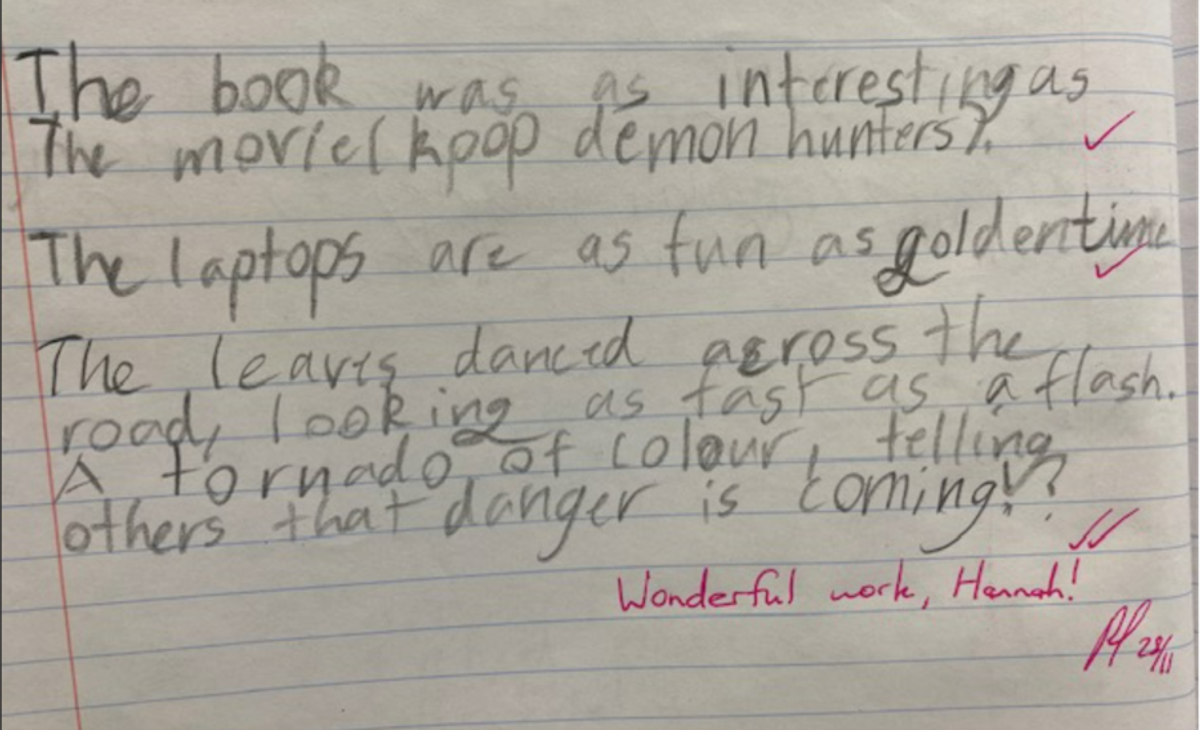 The book was as interesting as
The movie(kpop demon hunters).
The laptops are as fun as goldentime
The leaves danced across the
road, looking as fast as a flash.
A tornado of colour, telling
others that danger is coming!?
Wonderful work, Hannah!
28/11